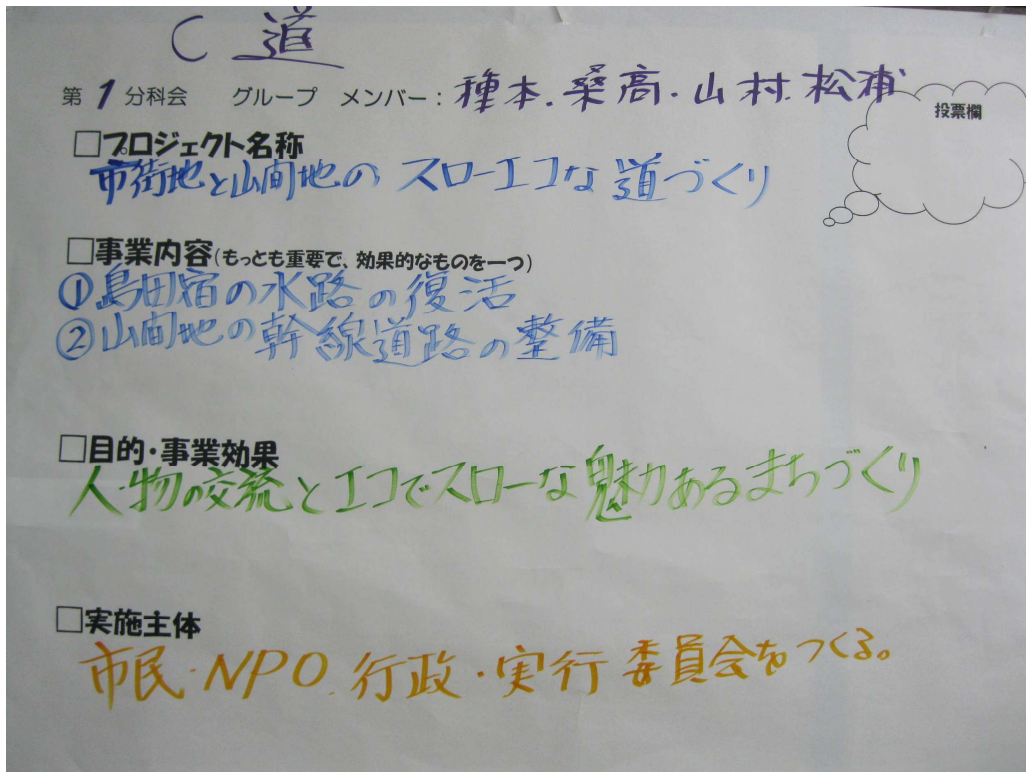 C 道
第1分科会 グループ メンバー：種本.桑高・山村.松浦
投票欄
□プロジェクト名称
市街地と山間地の スローエコな道づくり
□事業内容(もっとも重要で、効果的なものを一つ)
①島田宿の水路の復活
②山間地の幹線道路の整備
□目的・事業効果
人・物の交流とエコでスローな魅力あるまちづくり
□実施主体
市民・NPO.行政・実行委員会をつくる。